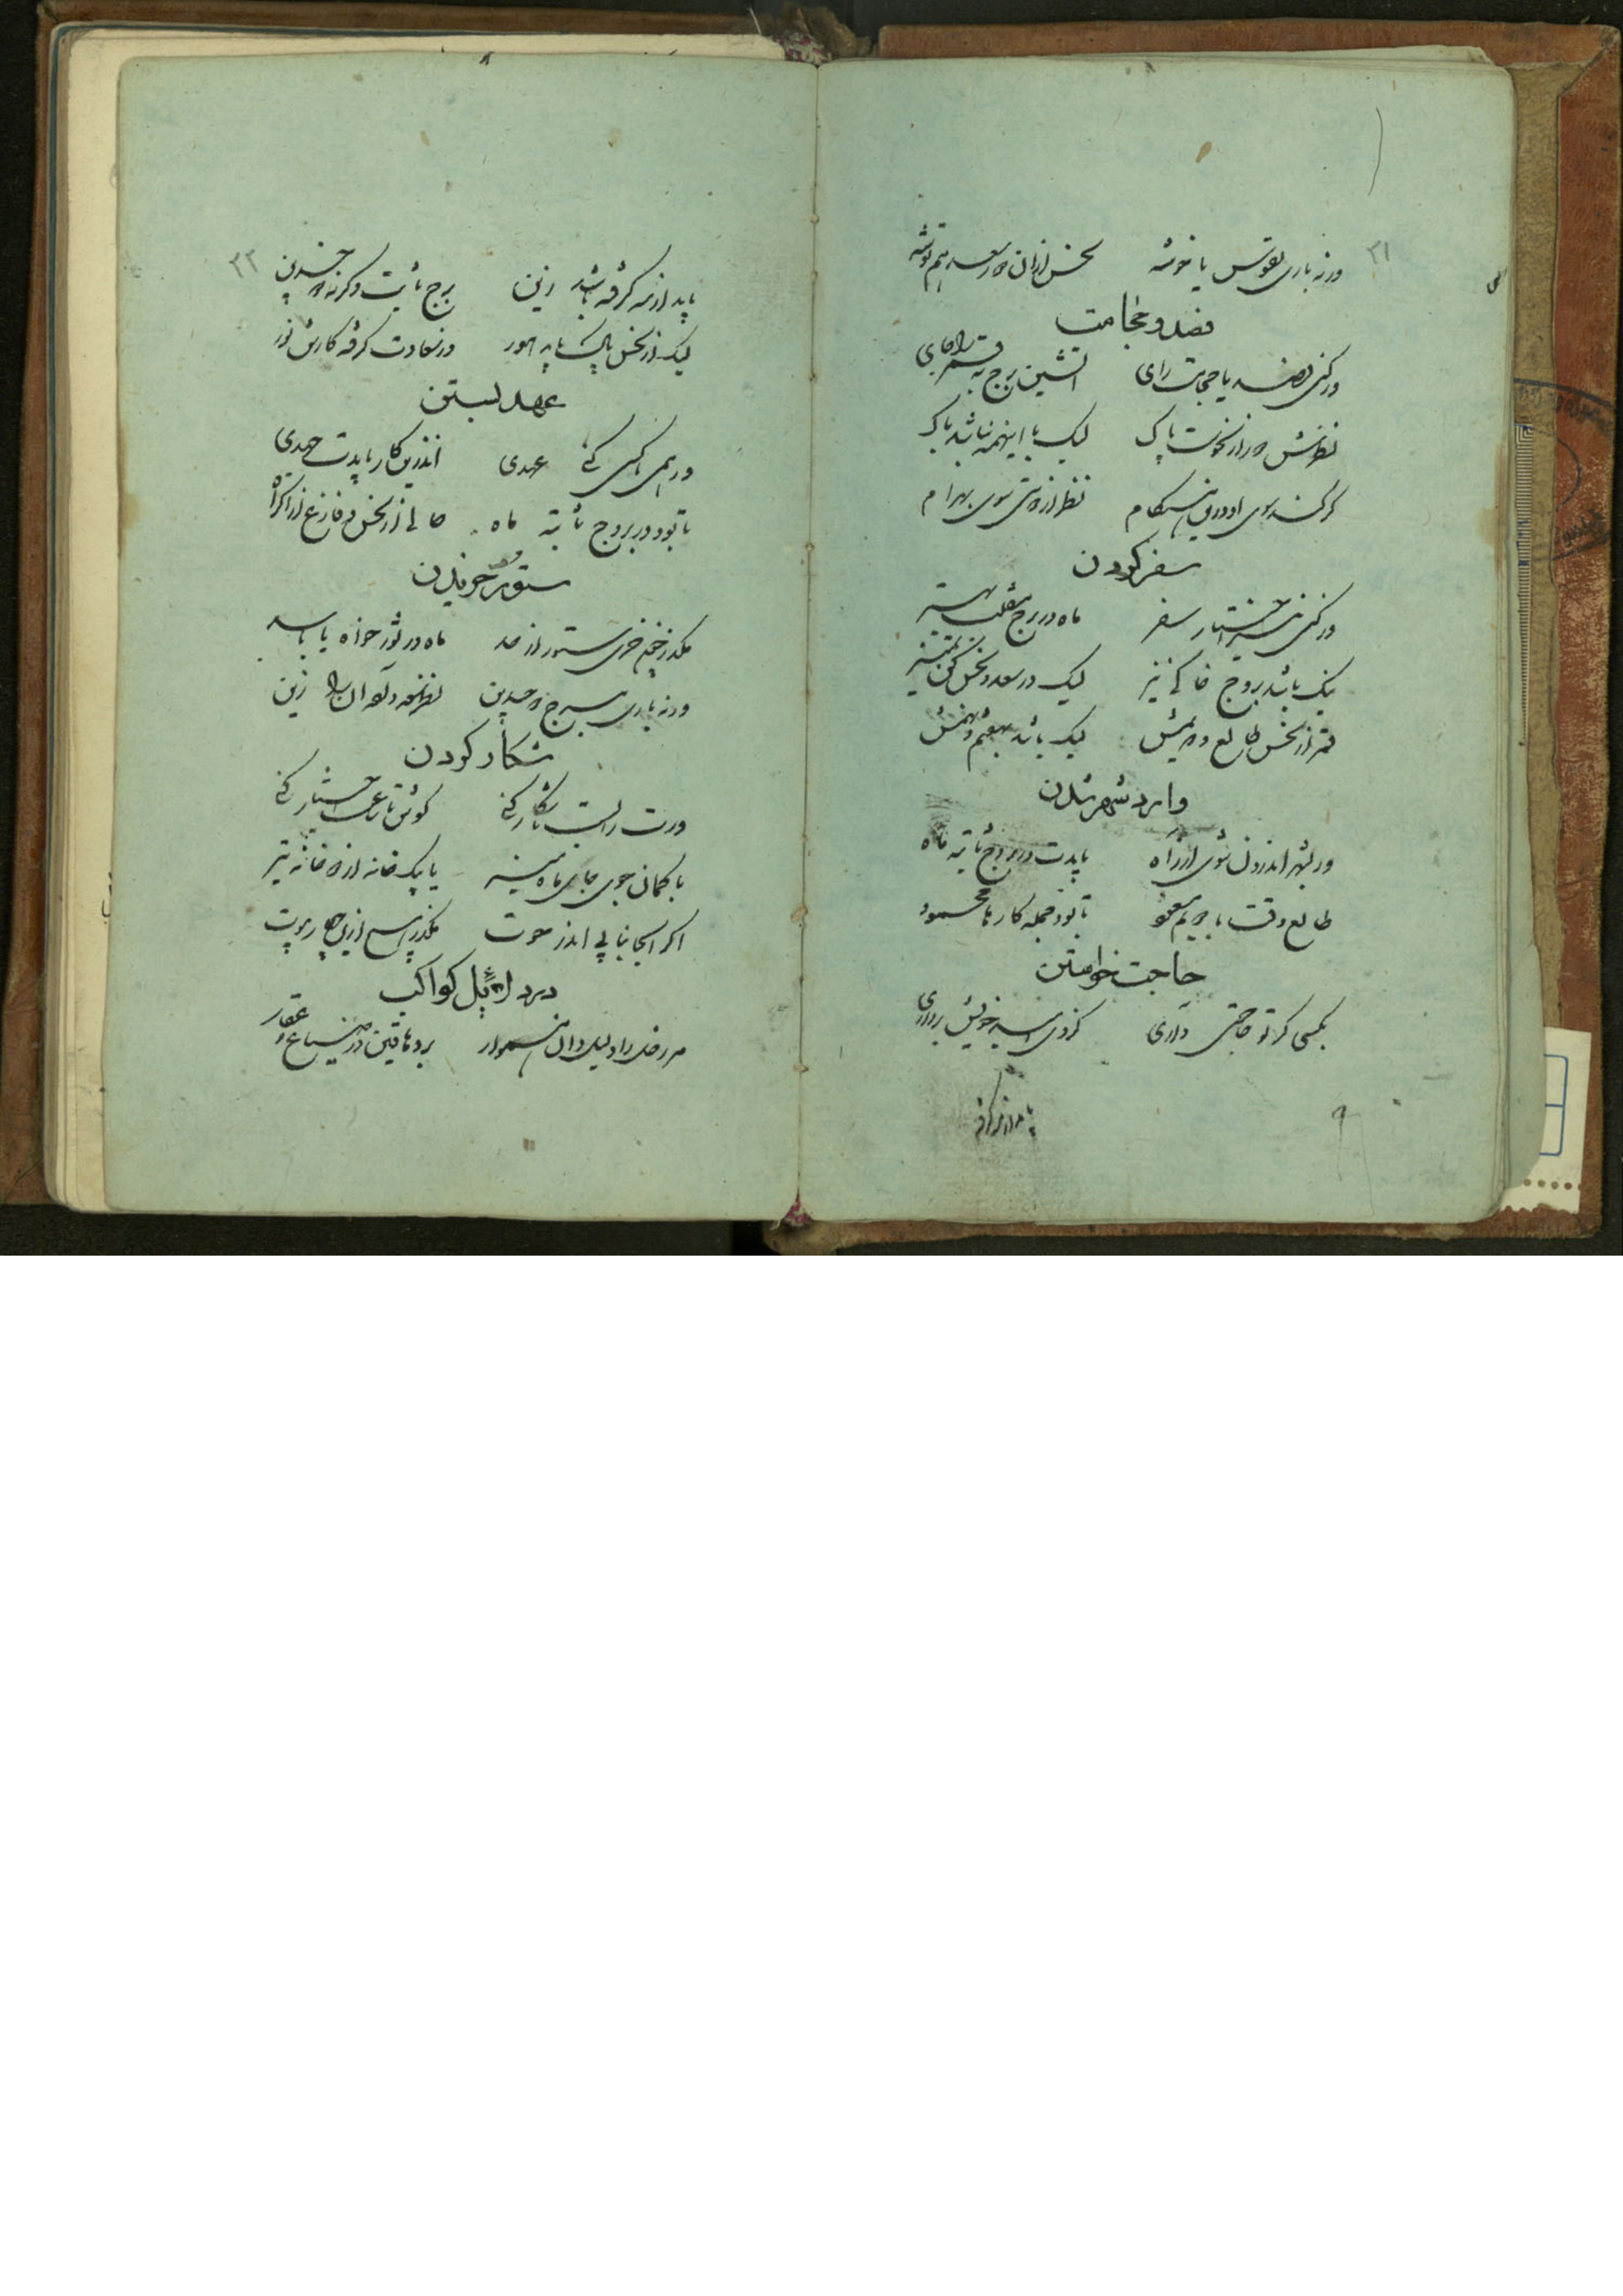 ۳۱
ورنه باری بقوس یا خوشه نحس ازان دور سعد هم توشه
فصد و حجامت
ور کنی فصد یا حجامت رای آتشین برج به قمر را جای
نظرش دور از نحوست پاک لیک با اینهمه نباشد باک
گر کند سوی او در آن هنگام نظر از دوستی سوی بهرام
سفر کردن
ور کنی اختیار سفر ماه در برج منقلب بهتر
نیک باشد بروج خاکی نیز لیک در سعد و نحس کن تمییز
قمر از نحس طالع و دهمش لیک باشد بهفتم و نهمش
وارد شهر شدن
ور بشهر اندرون شوی از راه بایدت در بروج ثابته ماه
طالع وقت با دویم مسعود تا بود جمله کارها محمود
حاجت خواستن
بکسی گر تو حاجتی داری کز وی امید خویش برداری
باید از مه گرفته
۳۲
باید از مه گرفته باشد زین برج ثابت وگرنه ذو جسدین
لیک از نحس پاک باید هور وز سعادت گرفته کارش نور
عهد بستن
ور همی با کسی کنی عهدی اندرین کار بایدت جهدی
تا بود در بروج ثابته ماه خالی از نحس و فارغ از اکراه
ستور خریدن
مگذر چون خری ستور از حد ماه در ثور خواه یا باسد
ورنه باری ببرج ذو جسدین
شکار کردن
ورت رای است تا شکار کنی کوش تا ساعت اختیار کنی
با کمان جوی جای ماه منیر یا یک خانه از دو خانه تیر
اگر اینجا نیابی اندر حوت مگذر ای پسر ازین چهار بیوت
در دلایل کواکب
مر زحل را دلیل دان هموار بر دهاقین و در ضیاع و عقار